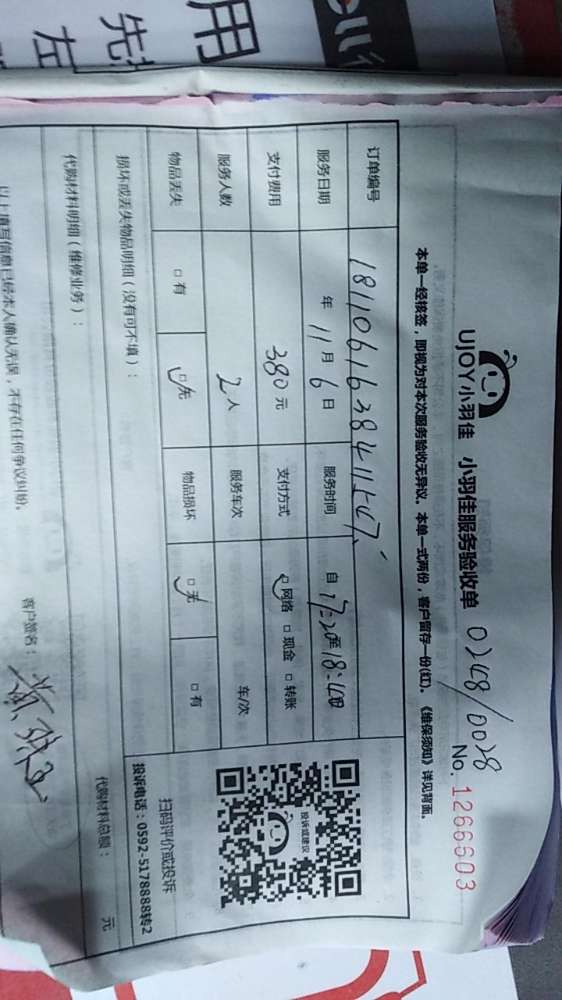 用
先
左
UJOY小羽佳 小羽佳服务验收单 0248/0028
No. 1266603
本单一经核签，即视为对本次服务验收无异议。本单一式两份，客户留存一份(红)。《维保须知》详见背面。
订单编号
服务日期 年 11 月 6 日 服务时间 自 17:20 至 18:40
支付费用 380 元 支付方式 □网络 □现金 □转账
服务人数 2 人 服务车次 车/次
物品丢失 □有 □无 物品损坏 □无 □有
投诉或建议
扫码评价或投诉
投诉电话：0592-5178888转2
损坏或丢失物品明细（没有可不填）：
代购材料明细（维修业务）： 代购材料总额： 元
以上填写信息已经本人确认无误，不存在任何争议纠纷。 客户签名：